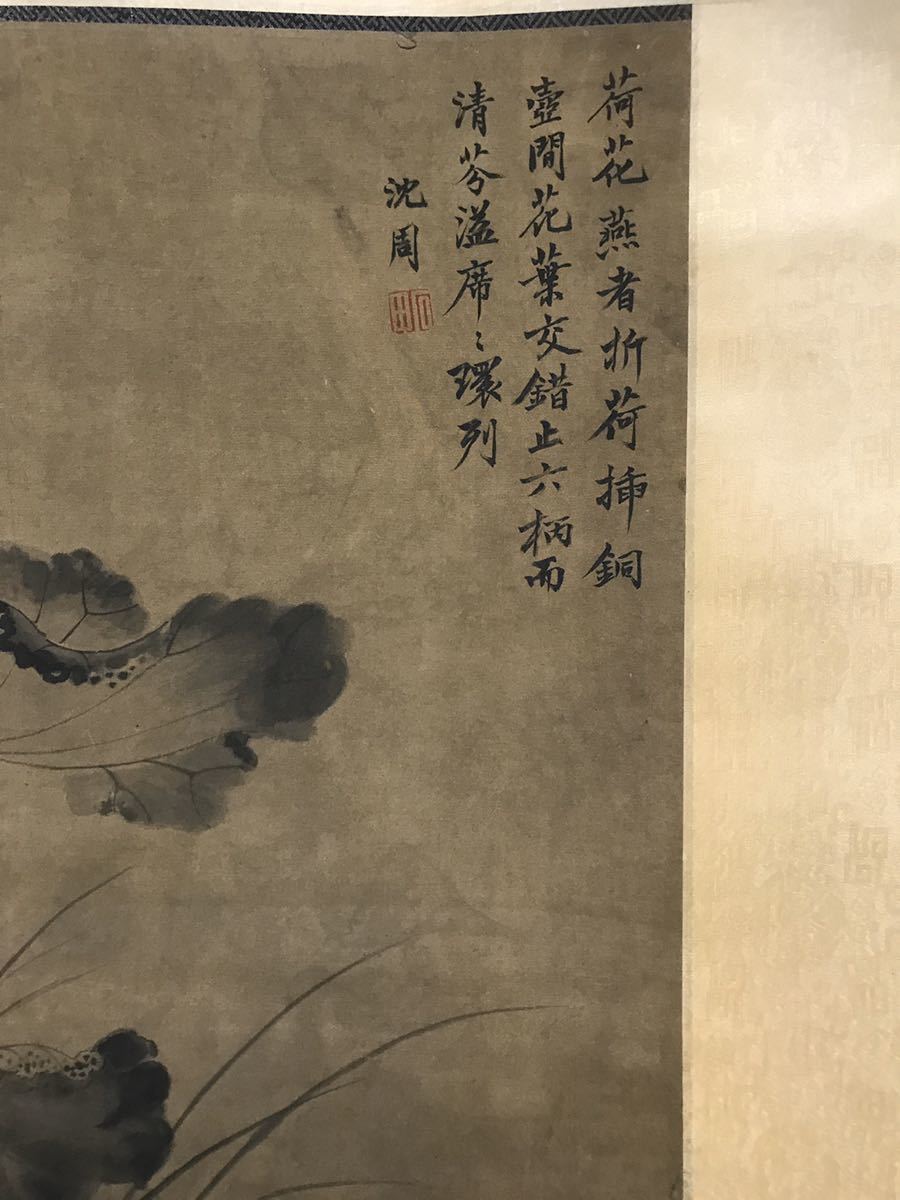 荷花燕者折荷揷銅
壺間花葉交錯止六柄而
清芬溢席〻環列
沈周